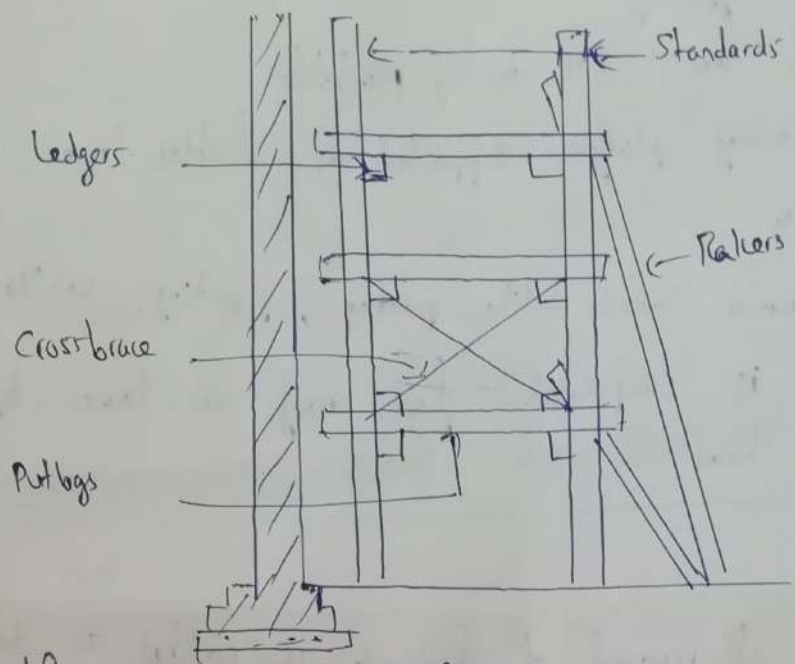 Standards
Ledgers
Rakers
Crossbrace
Putlogs